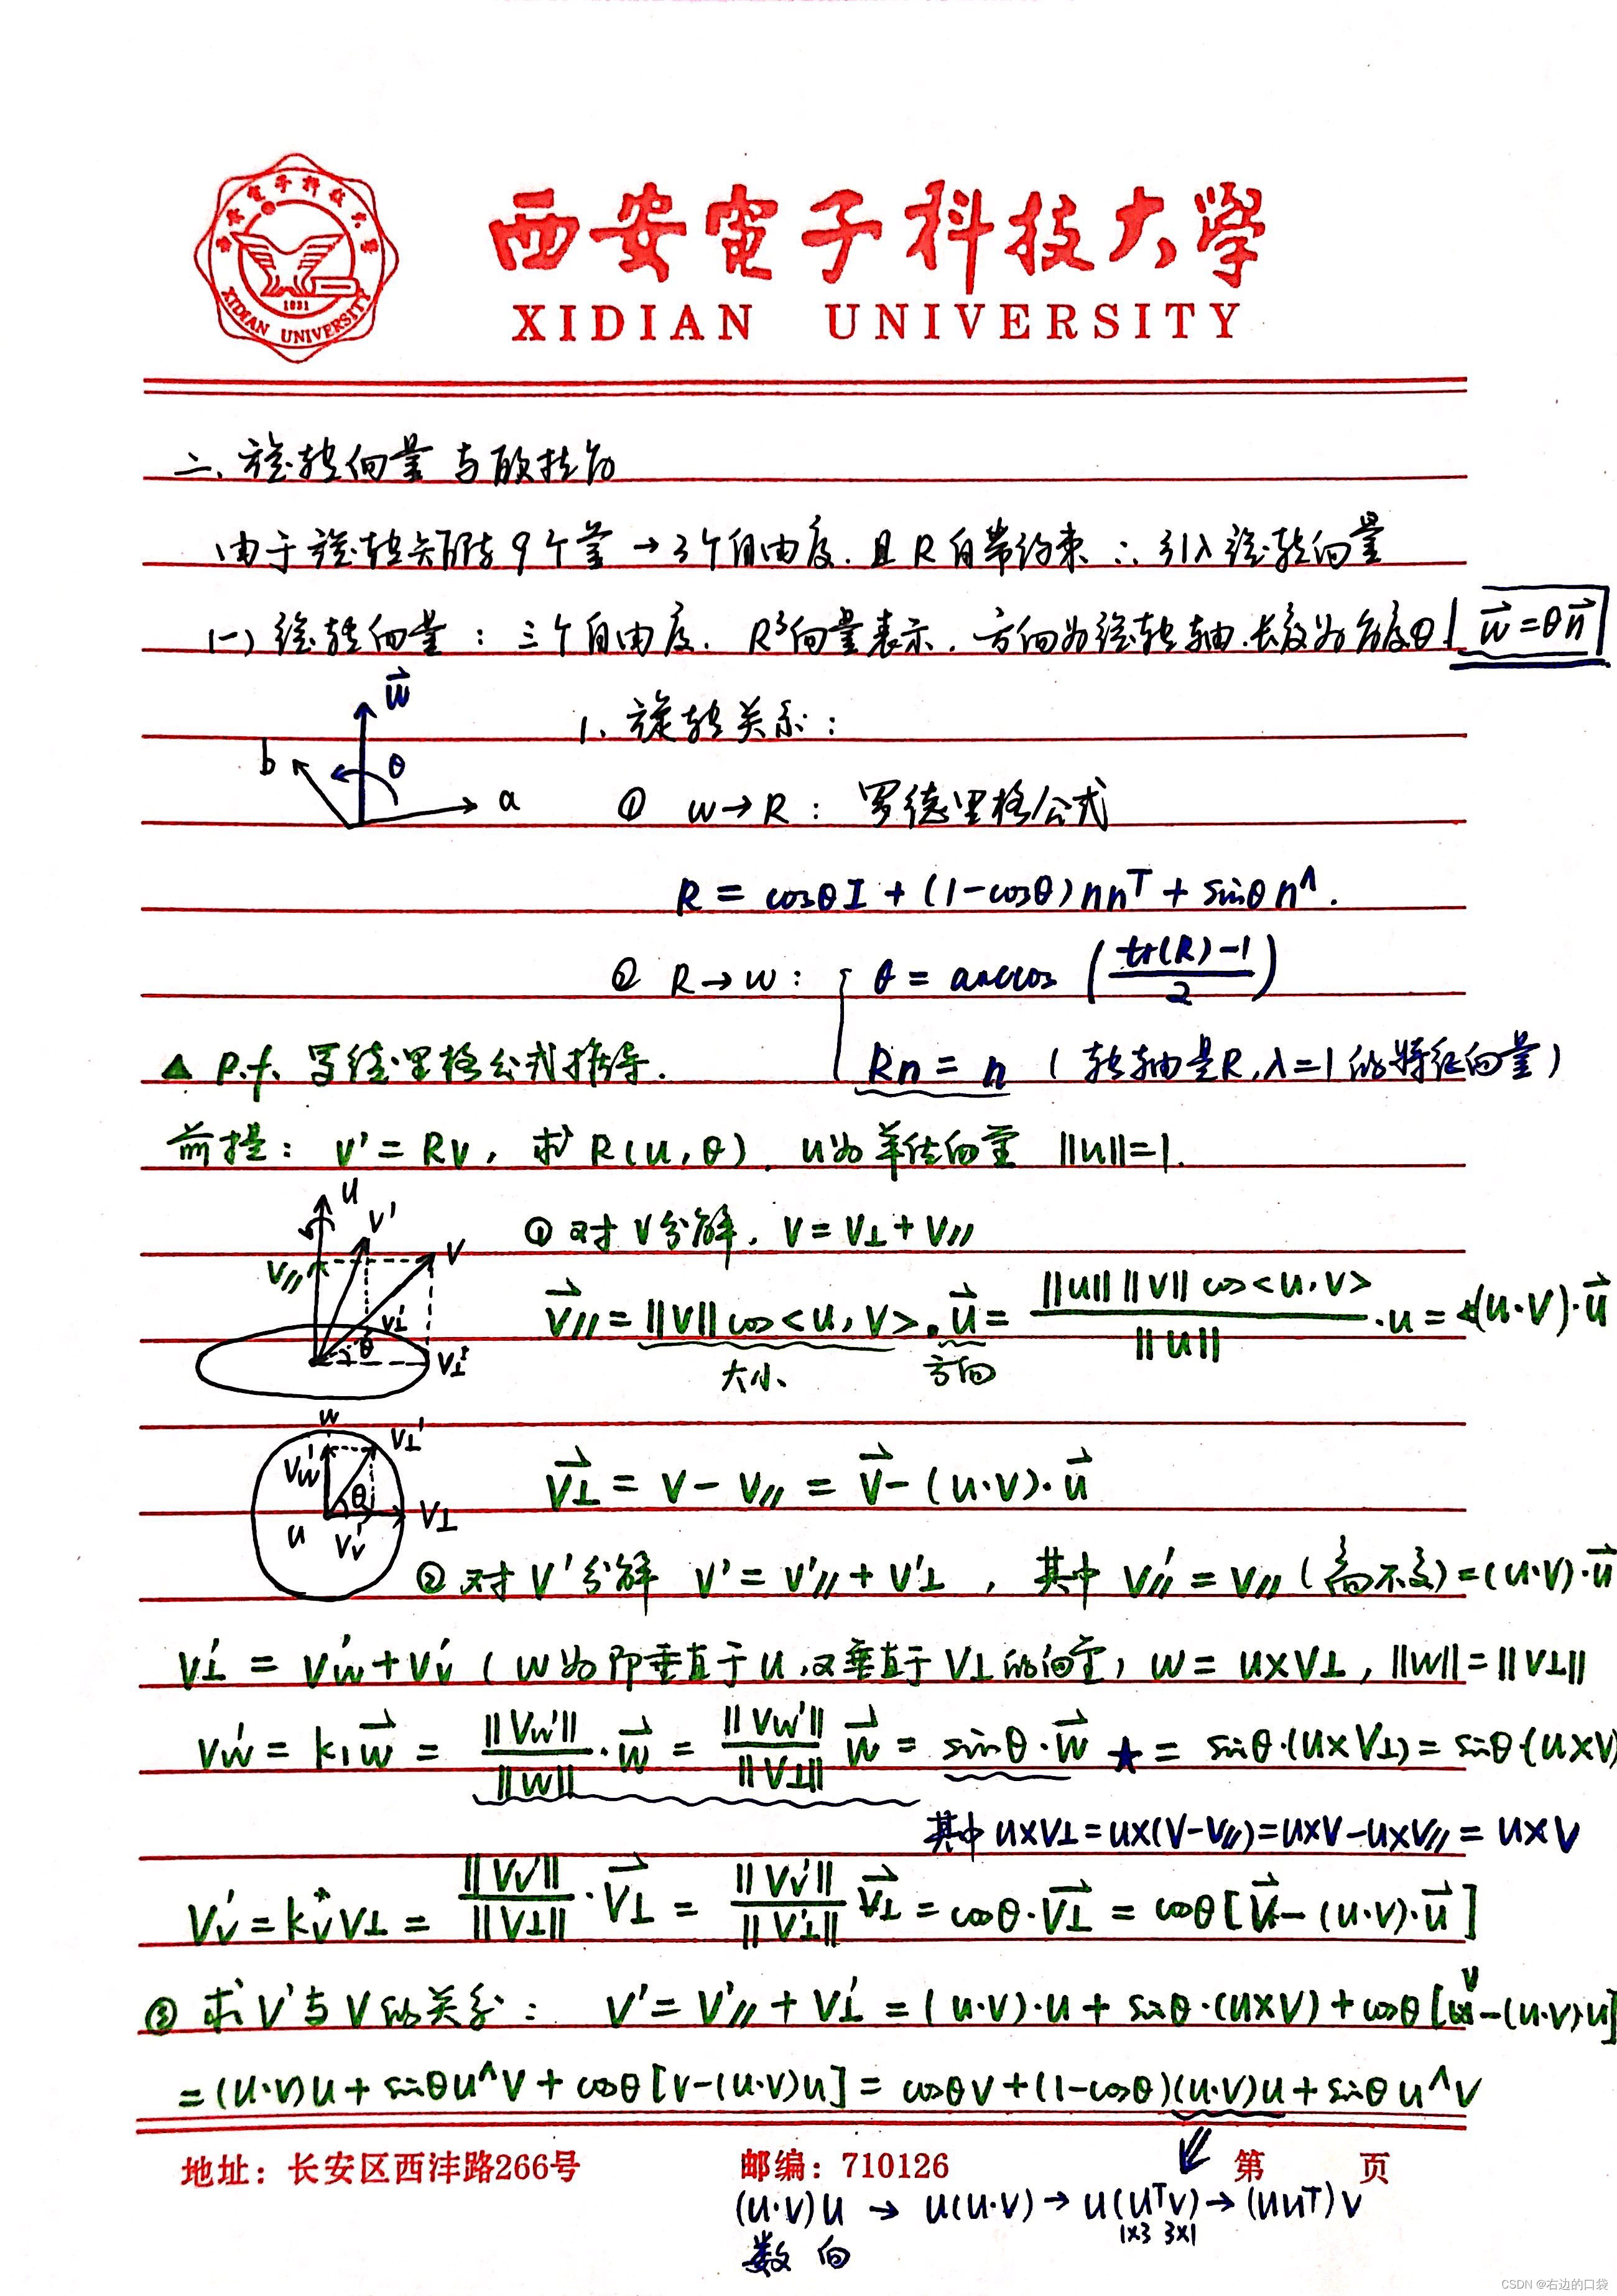 西安電子科技大學
XIDIAN UNIVERSITY
1931
XIDIAN UNIVERSITY
二、旋转向量与欧拉角
由于旋转矩阵9个量→3个自由度.且R自带约束 ∴引入旋转向量
(一)旋转向量：三个自由度. R³向量表示. 方向为旋转轴.长度为角度θ w=θn
w
b θ a
1、旋转关系：
① w→R：罗德里格公式
R = cosθI + (1-cosθ)nnᵀ + sinθ n^.
② R→w： θ = arccos (tr(R)-1 / 2)
Rn = n (转轴是R,λ=1的特征向量)
▲ P.f. 罗德里格公式推导.
前提：v'=Rv, 求R(u,θ). u为单位向量 ||u||=1.
u v' v v// v⊥' θ v⊥
① 对v分解. v=v⊥+v//
v// = ||v||cos<u,v>·u = ||u||||v||cos<u,v> / ||u|| ·u = (u·v)·u
大小 方向
w v⊥' vw' θ v⊥ u vv'
v⊥ = v-v// = v-(u·v)·u
② 对v'分解 v'=v'//+v'⊥, 其中v'//=v//(方向不变)=(u·v)·u
v⊥' = vw'+vv' (w为即垂直于u,又垂直于v⊥的向量) w=u×v⊥, ||w||=||v⊥||
vw' = k₁w = ||vw'||/||w|| ·w = ||vw'||/||v⊥|| w = sinθ·w ★ = sinθ·(u×v⊥)=sinθ·(u×v)
其中u×v⊥=u×(v-v//)=u×v-u×v//=u×v
vv' = kv v⊥ = ||vv'||/||v⊥|| ·v⊥ = ||vv'||/||v'⊥|| v⊥ = cosθ·v⊥ = cosθ[v-(u·v)·u]
③ 求v'与v的关系： v'=v'//+v⊥'=(u·v)·u+sinθ·(u×v)+cosθ[v-(u·v)·u]
=(u·v)u+sinθu^v+cosθ[v-(u·v)u]=cosθv+(1-cosθ)(u·v)u+sinθu^v
地址：长安区西沣路266号 邮编：710126 第 页
(u·v)u → u(u·v)→u(uᵀv)→(uuᵀ)v
1×3 3×1
数 向
CSDN @右边的口袋